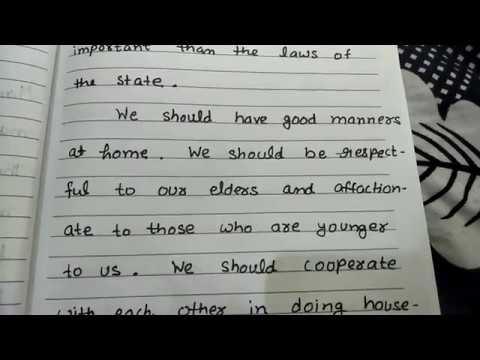 important than the laws of
the state.
We should have good manners
at home. We should be respect-
ful to our elders and affaction-
ate to those who are younger
to us. We should cooperate
with each other in doing house-